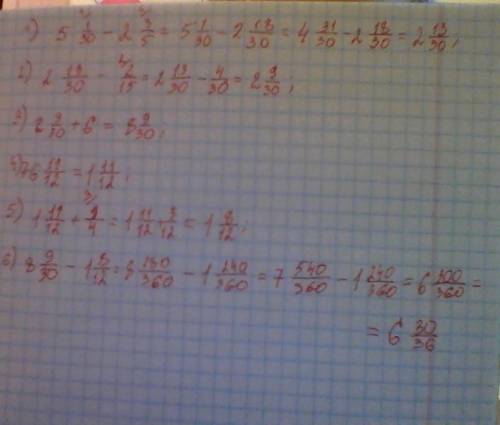 1) 5 1/30 - 2 3/5 = 5 1/30 - 2 18/30 = 4 31/30 - 2 18/30 = 2 13/30;
2) 2 13/30 - 2/15 = 2 13/30 - 4/30 = 2 9/30;
3) 2 9/30 + 6 = 8 9/30;
6 11/12 = 1 11/12;
5) 1 11/12 + 9/4 = 1 11/12 3/12 = 1 8/12;
6) 8 9/30 - 1 8/12 = 8 180/360 - 1 240/360 = 7 540/360 - 1 240/360 = 6 300/360 =
= 6 30/36